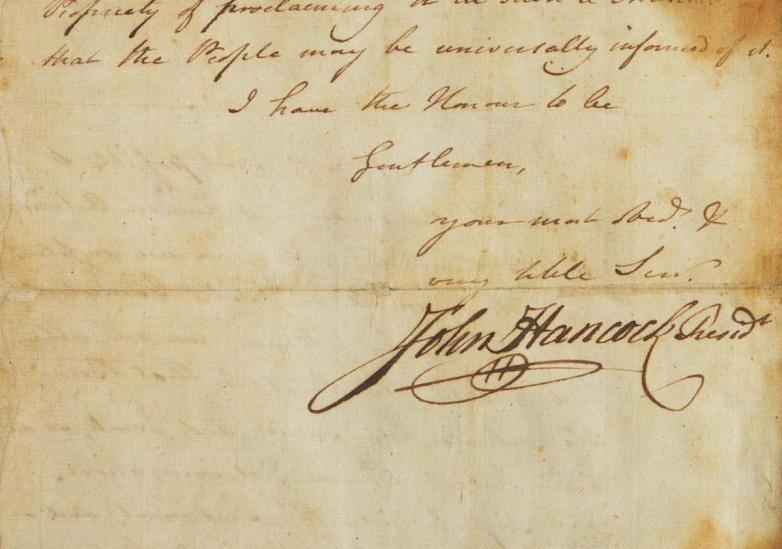 Propriety of proclaiming it in such a Manner
that the People may be universally informed of it.
I have the Honour to be
Gentlemen,
your most Obed.t &
very hble Serv.
John Hancock Presid.t